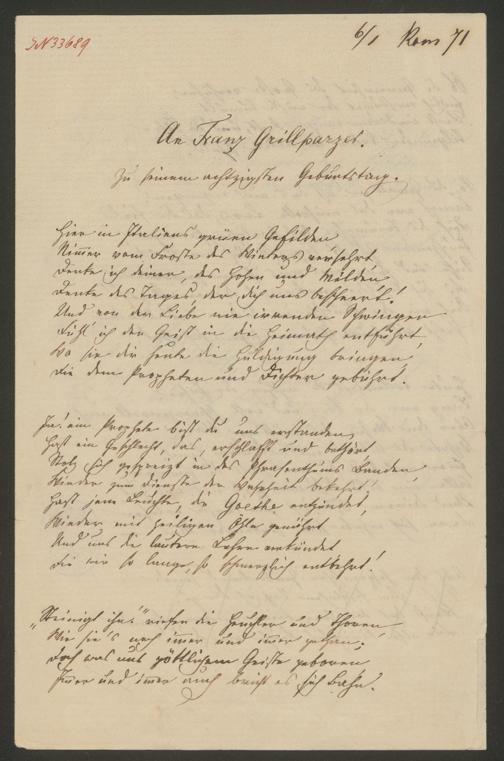 JN 33689
6/1 Rom 71
An Franz Grillparzer.
Zu seinem achtzigsten Geburtstag.
Hier in Italiens grünen Gefilden
Nimmer vom Froste des Winters versehrt
Denke ich deiner, des Hohen und Milden
Denke des Tages der dich uns beschert!
Und von der Liebe nie irrenden Schwingen
Fühl' ich den Geist in die Heimath entführt,
Wo sie dir heute die Huldigung bringen
Die dem Propheten und Dichter gebührt.
Ja! ein Prophete bist du uns erstanden,
Hast ein Geschlecht, das, erschlafft und bethört,
Stolz sich gespreizt in des Phrasenthums Banden,
Wieder zum Dienste der Wahrheit bekehrt!
Hast jene Leuchte, die Goethe entzündet,
Wieder mit heiligem Öhle genährt
Und uns die lautere Lehre verkündet
Die wir so lange, so schmerzlich entbehrt!
„Steinigt ihn!" riefen die Heuchler und Thoren,
Wie sie's noch immer und immer gethan;
Doch was aus göttlichem Geiste geboren
Immer und immer auch bricht es sich Bahn.